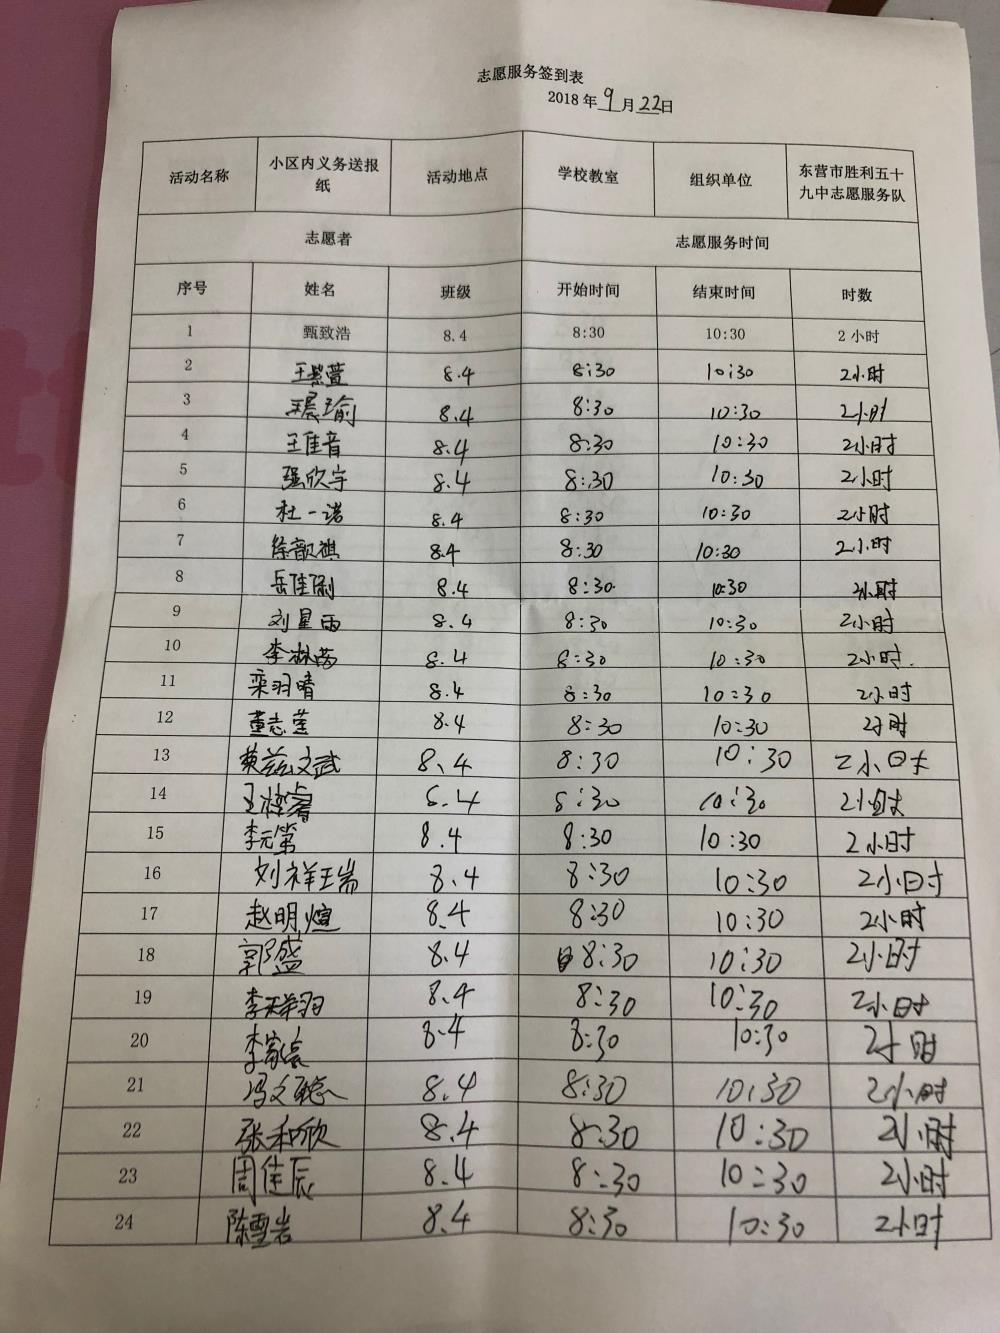 志愿服务签到表
2018年9月22日
活动名称 小区内义务送报纸 活动地点 学校教室 组织单位 东营市胜利五十九中志愿服务队
志愿者 志愿服务时间
序号 姓名 班级 开始时间 结束时间 时数
1 甄致浩 8.4 8:30 10:30 2小时
2 王紫萱 8.4 8:30 10:30 2小时
3 王晨瑜 8.4 8:30 10:30 2小时
4 王佳音 8.4 8:30 10:30 2小时
5 强欣宇 8.4 8:30 10:30 2小时
6 杜一诺 8.4 8:30 10:30 2小时
7 徐歆祺 8.4 8:30 10:30 2小时
8 岳佳 8.4 8:30 10:30 2小时
9 刘星雨 8.4 8:30 10:30 2小时
10 李林 8.4 8:30 10:30 2小时.
11 栾羽晴 8.4 8:30 10:30 2小时
12 董志莹 8.4 8:30 10:30 2小时
13 蔡兹文武 8.4 8:30 10:30 2小时
14 王梓睿 8.4 8:30 10:30 2小时
15 李元第 8.4 8:30 10:30 2小时
16 刘祥瑞 8.4 8:30 10:30 2小时
17 赵明煊 8.4 8:30 10:30 2小时
18 郭盛 8.4 8:30 10:30 2小时
19 李祥羽 8.4 8:30 10:30 2小时
20 李家 8.4 8:30 10:30 2小时
21 冯文聪 8.4 8:30 10:30 2小时
22 张和欣 8.4 8:30 10:30 2小时
23 周佳辰 8.4 8:30 10:30 2小时
24 陈雪岩 8.4 8:30 10:30 2小时